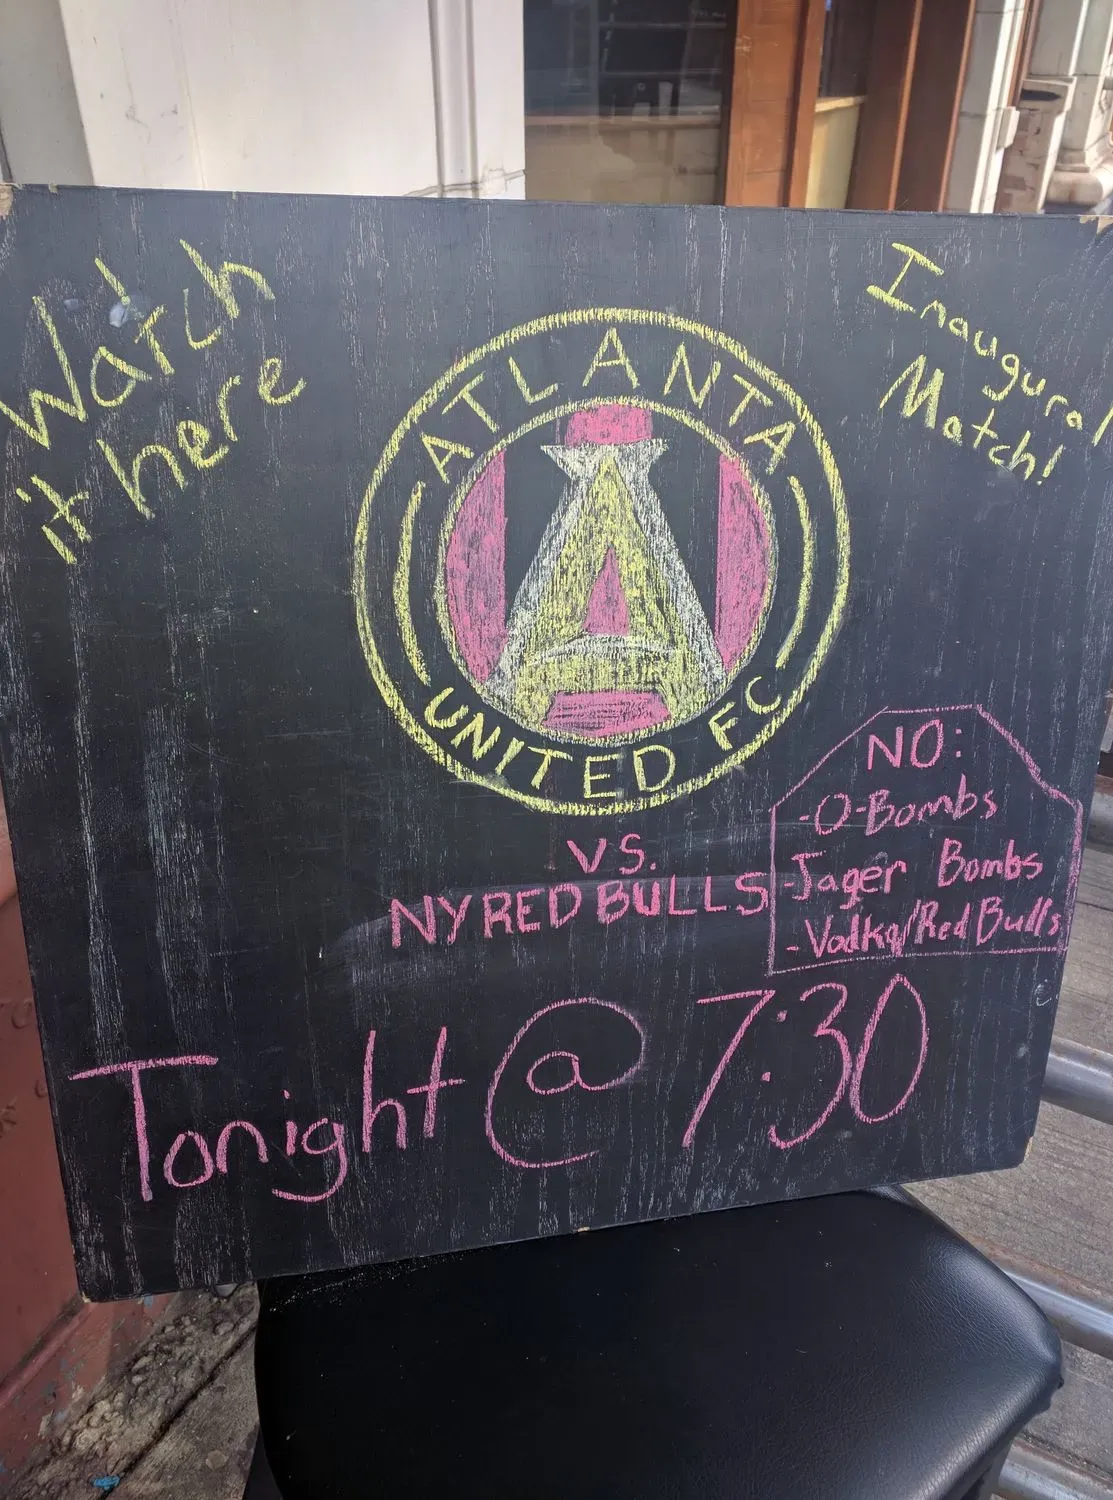 Watch
it here
Inaugural
Match!
ATLANTA
A
UNITED FC
VS.
NY RED BULLS
NO:
-O-Bombs
-Jager Bombs
-Vodka/Red Bulls
Tonight @ 7:30